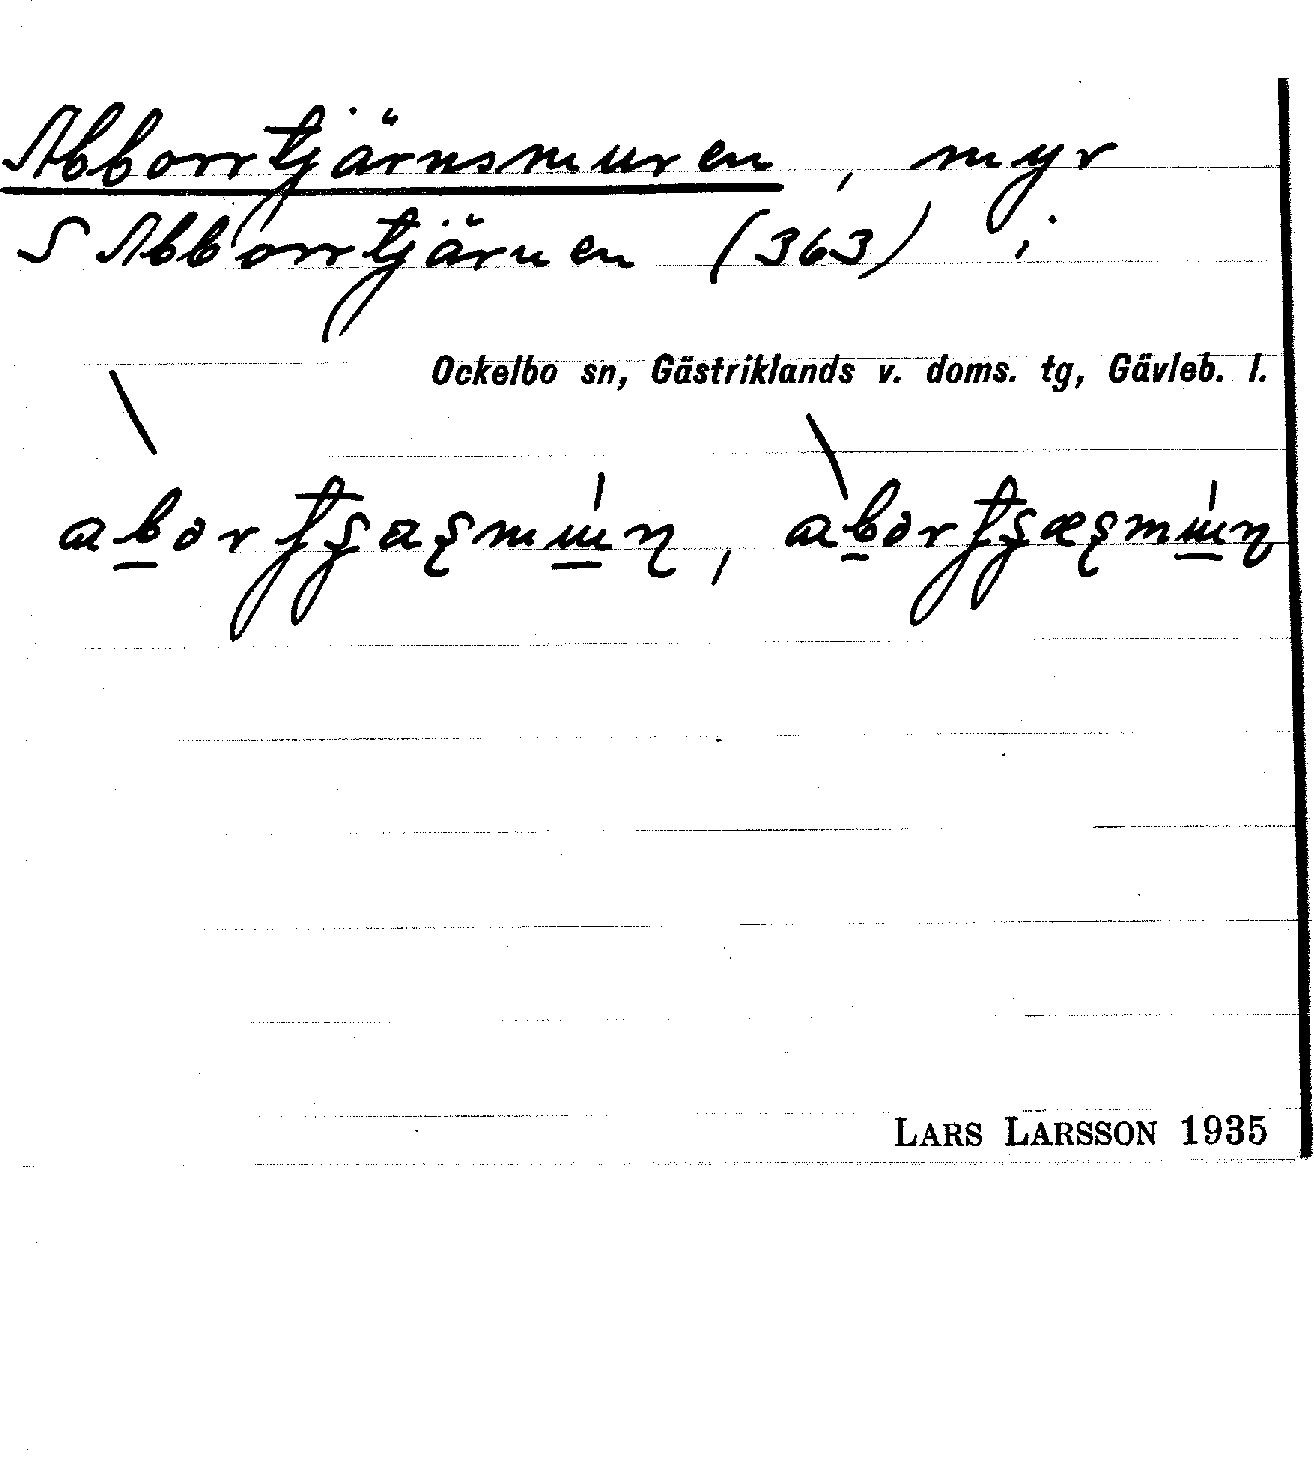 Abborrtjärnsmuren, myr
S Abborrtjärnen (363) i
Ockelbo sn, Gästriklands v. doms. tg, Gävleb. l.
LARS LARSSON 1935